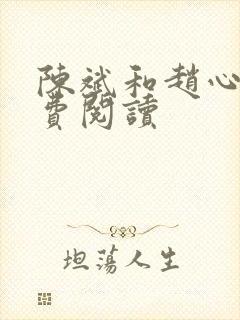 陳斌和趙心
費閱讀
坦蕩人生